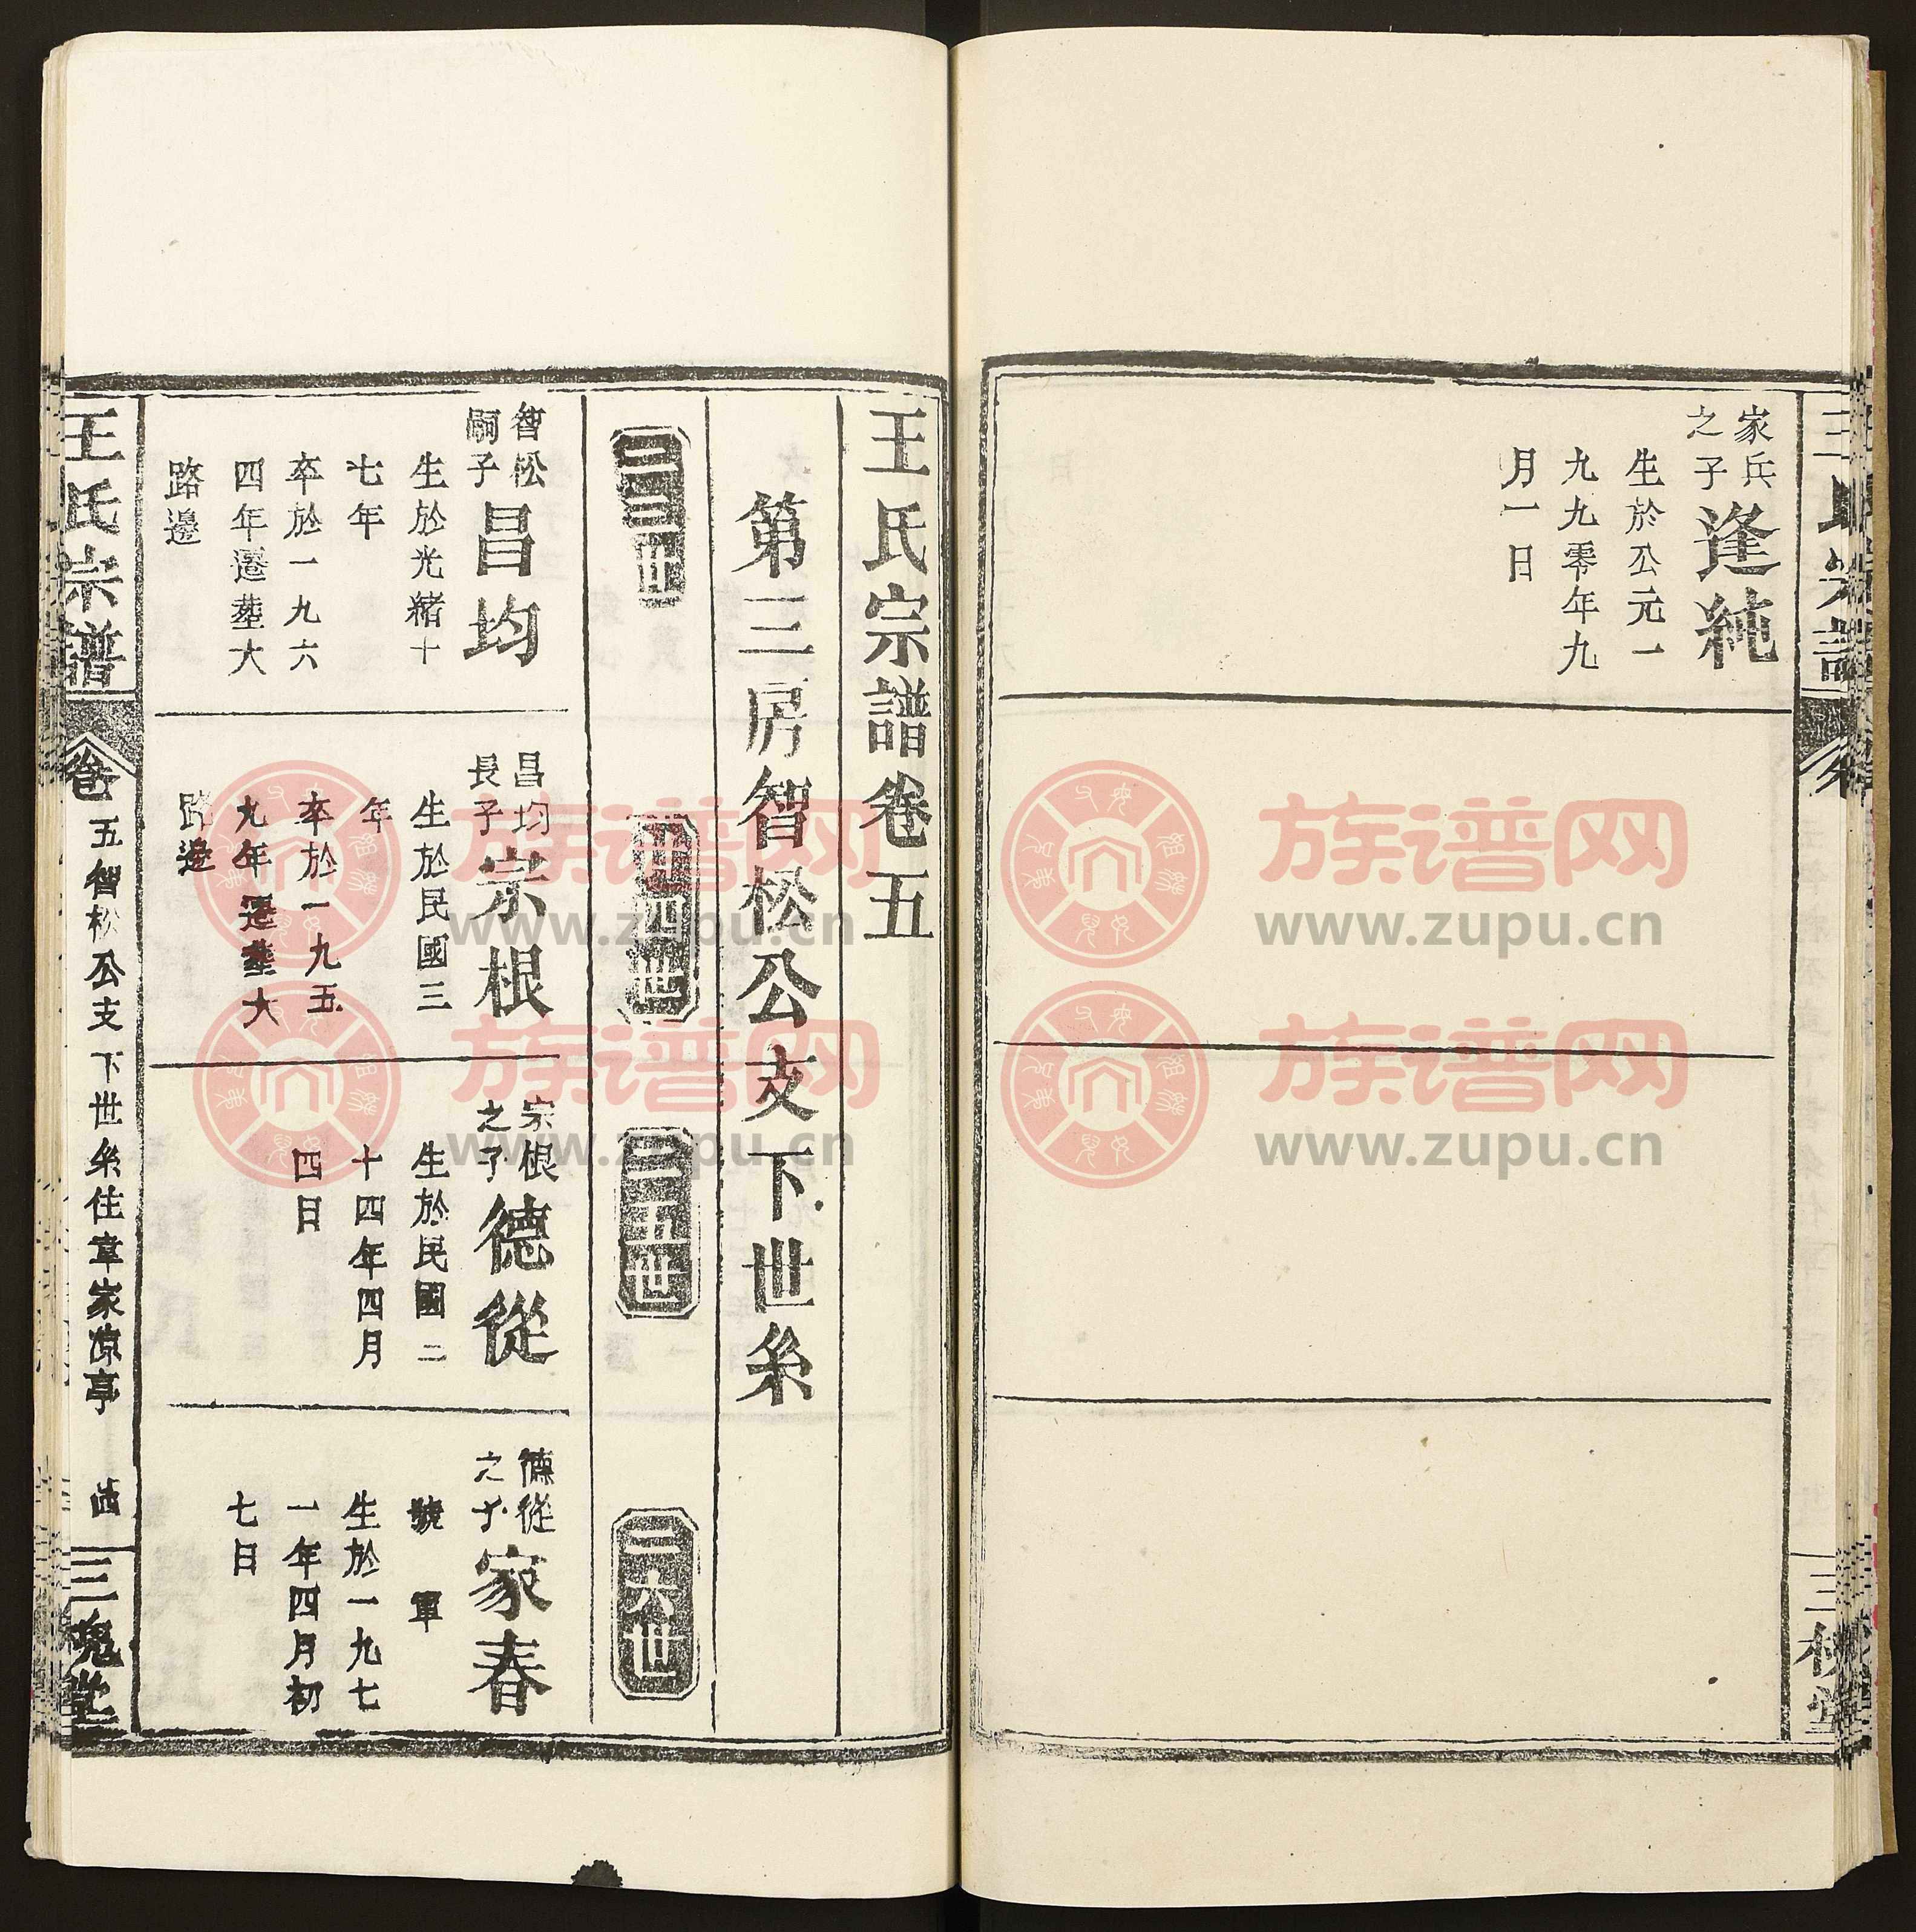 家兵
之子
逢純
生於公元一
九九零年九
月一日
王氏宗譜卷五
第三房智松公支下世系
三三世
卅四世
三五世
三六世
智松
嗣子
昌均
生於光緒十
七年
卒於一九六
四年遷塟大
路邊
昌均
長子
宗根
生於民國三
年
卒於一九五
九年遷塟大
路邊
宗根
之子
德從
生於民國二
十四年四月
四日
德從
之子
家春
號 軍
生於一九七
一年四月初
七日
王氏宗譜
卷五智松公支下世系住章家凉亭
三槐堂
族谱网
www.zupu.cn
族谱网
www.zupu.cn
族谱网
www.zupu.cn
族谱网
www.zupu.cn